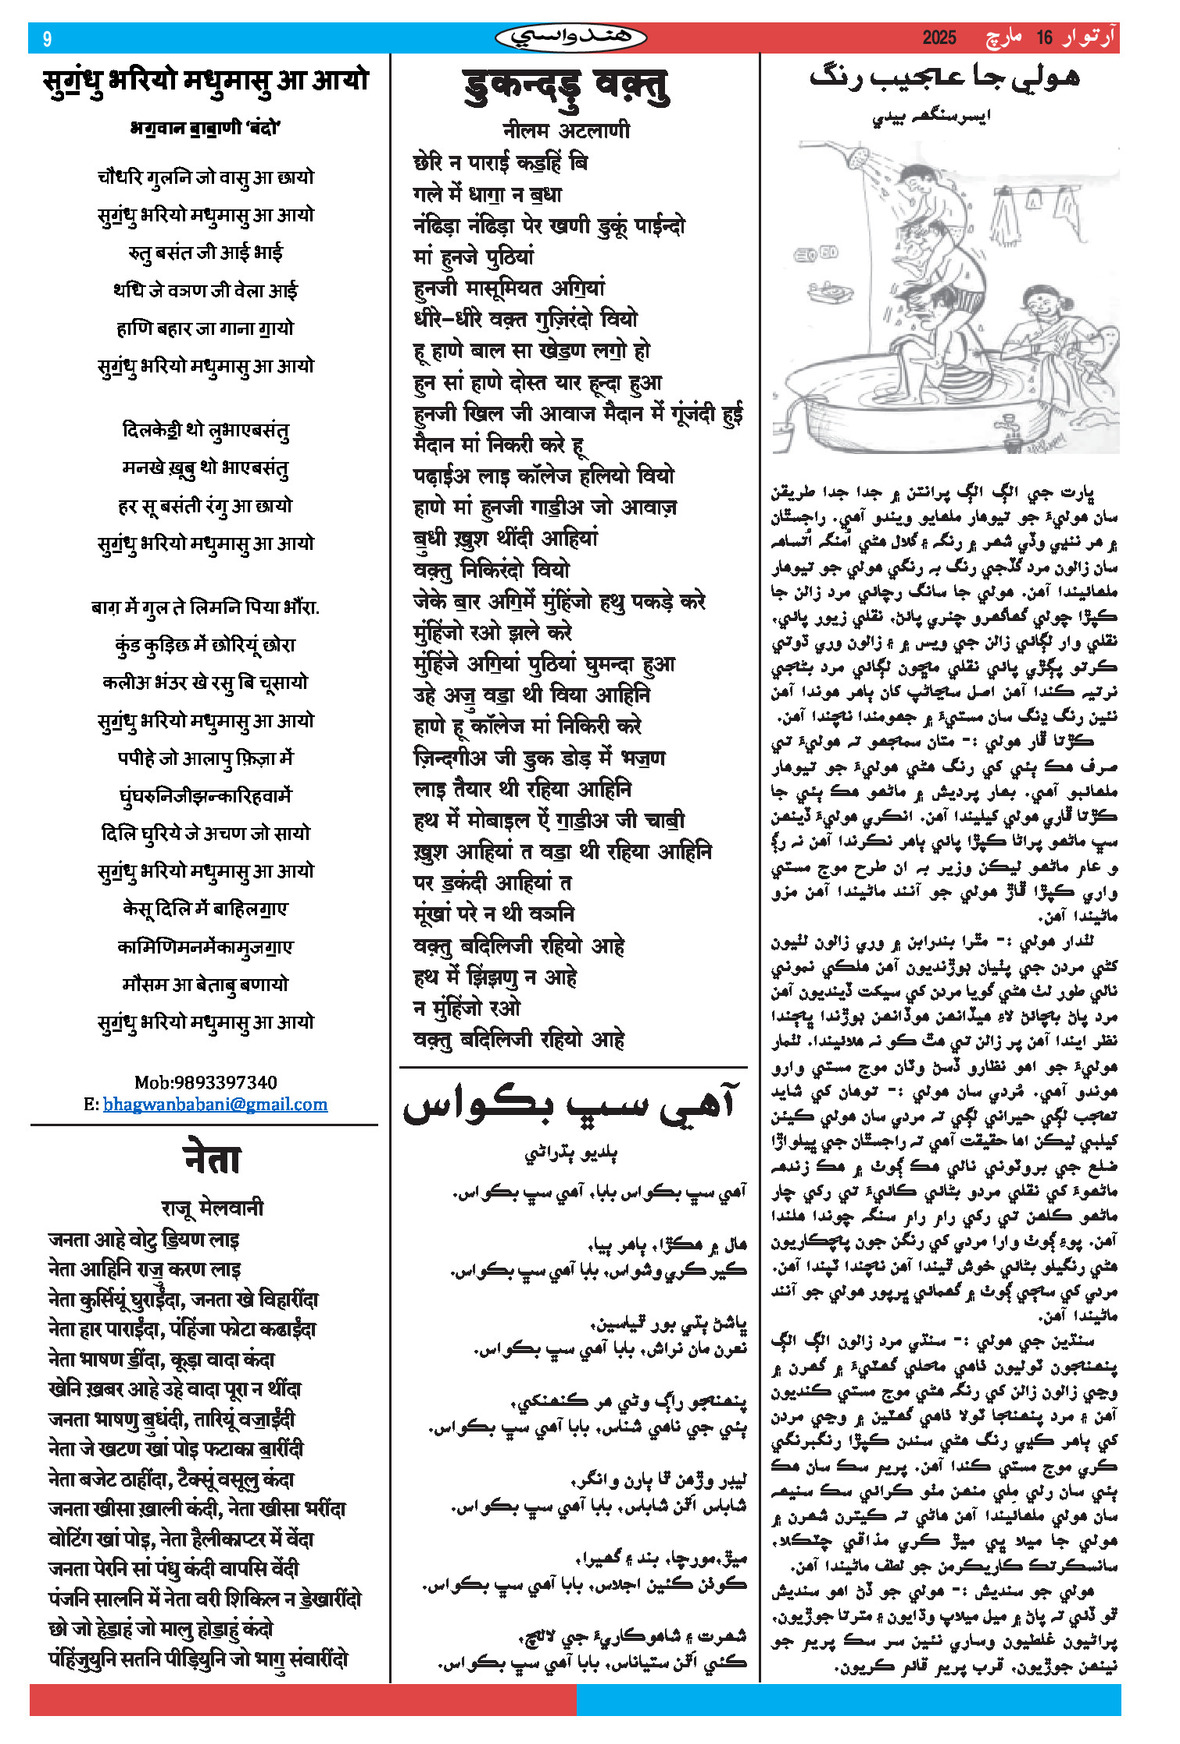 9
هندواسي
آرتوار 16 مارچ 2025
सुग॒ंधु भरियो मधुमासु आ आयो
भग॒वान बा॒बा॒णी ‘बंदो’
चौधरि गुलनि जो वासु आ छायो
सुग॒ंधु भरियो मधुमासु आ आयो
रुतु बसंत जी आई भाई
थधि जे वञण जी वेला आई
हाणि बहार जा गाना गा॒यो
सुग॒ंधु भरियो मधुमासु आ आयो
दिलकेडी॒ थो लुभाएबसंतु
मनखे ख़ूबु थो भाएबसंतु
हर सू बसंती रंगु आ छायो
सुग॒ंधु भरियो मधुमासु आ आयो
बाग़ में गुल ते लिमनि पिया भौंरा.
कुंड कुड़िछ में छोरियूं छोरा
कलीअ भंउर खे रसु बि चूसायो
सुग॒ंधु भरियो मधुमासु आ आयो
पपीहे जो आलापु फ़िज़ा में
घुंघरुनिजीझन्कारिहवामें
दिलि घुरिये जे अचण जो सायो
सुग॒ंधु भरियो मधुमासु आ आयो
केसू दिलि में बाहिलगा॒ए
कामिणिमनमेंकामुजगा॒ए
मौसम आ बेताबु बणायो
सुग॒ंधु भरियो मधुमासु आ आयो
Mob:9893397340
E: bhagwanbabani@gmail.com
नेता
राजू मेलवानी
जनता आहे वोटु डि॒यण लाइ
नेता आहिनि राजु॒ करण लाइ
नेता कुर्सियूं घुराईंदा, जनता खे विहारींदा
नेता हार पाराईंदा, पंहिंजा फोटा कढाईंदा
नेता भाषण डीं॒दा, कूड़ा वादा कंदा
खेनि ख़बर आहे उहे वादा पूरा न थींदा
जनता भाषणु बु॒धंदी, तारियूं वजा॒ईंदी
नेता जे खटण खां पोइ फटाका बा॒रींदी
नेता बजेट ठाहींदा, टैक्सूं वसूलु कंदा
जनता खीसा ख़ाली कंदी, नेता खीसा भरींदा
वोटिंग खां पोइ, नेता हैलीकाप्टर में वेंदा
जनता पेरनि सां पंधु कंदी वापसि वेंदी
पंजनि सालनि में नेता वरी शिकिल न डे॒खारींदो
छो जो हेडा॒हं जो मालु होडा॒हुं कंदो
पंहिंजुयुनि सतनि पीड़ियुनि जो भागु॒ संवारींदो
डुकन्दड़ु वक़्तु
नीलम अटलाणी
छेरि न पाराई कड॒हिं बि
गले में धागा॒ न ब॒धा
नंढिड़ा नंढिड़ा पेर खणी डुकूं पाईन्दो
मां हुनजे पुठियां
हुनजी मासूमियत अगि॒यां
धीरे–धीरे वक़्त गुज़िरंदो वियो
हू हाणे बाल सा खेड॒ण लगो॒ हो
हुन सां हाणे दोस्त यार हून्दा हुआ
हुनजी खिल जी आवाज मैदान में गूंजंदी हुई
मैदान मां निकरी करे हू
पढ़ाईअ लाइ कॉलेज हलियो वियो
हाणे मां हुनजी गाडी॒अ जो आवाज़
बु॒धी ख़ुश थींदी आहियां
वक़्तु निकिरंदो वियो
जेके बा॒र अगि॒में मुंहिंजो हथु पकड़े करे
मुंहिंजो रओ झले करे
मुंहिंजे अगि॒यां पुठियां घुमन्दा हुआ
उहे अजु॒ वडा॒ थी विया आहिनि
हाणे हू कॉलेज मां निकिरी करे
ज़िन्दगीअ जी डुक डोड़ में भज॒ण
लाइ तैयार थी रहिया आहिनि
हथ में मोबाइल ऐं गा॒डी॒अ जी चाबी॒
ख़ुश आहियां त वडा॒ थी रहिया आहिनि
पर ड॒कंदी आहियां त
मूंखां परे न थी वञनि
वक़्तु बदिलिजी रहियो आहे
हथ में झिंझणु न आहे
न मुंहिंजो रओ
वक़्तु बदिलिजी रहियो आहे
آهي سڀ بڪواس
بلديو پڌراڻي
آهي سڀ بڪواس بابا، آهي سڀ بڪواس.
هال ۾ هڪڙا، ٻاهر ٻيا،
ڪير ڪري وشواس، بابا آهي سڀ بڪواس.
ڀاشڻ ٻڌي بور ٿياسين،
نعرن مان نراش، بابا آهي سڀ بڪواس.
پنهنجو راڳ وڻي هر ڪنهنکي،
ٻئي جي ناهي شناس، بابا آهي سڀ بڪواس.
ليڊر وڙهن ٿا ٻارن وانگر،
شاباس اٿن شاباس، بابا آهي سڀ بڪواس.
ميڙ،مورچا، بند ۽ گهيرا،
ڪوڏن ڪئين اجلاس، بابا آهي سڀ بڪواس.
شهرت ۽ شاهوڪاريءَ جي لالچ،
ڪئي اٿن ستياناس، بابا آهي سڀ بڪواس.
هولي جا عجيب رنگ
ايسرسنگهه بيدي
ڀارت جي الڳ الڳ پرانتن ۾ جدا جدا طريقن
سان هوليءَ جو تيوهار ملهايو ويندو آهي. راجسٿان
۾ هر ننڍي وڏي شهر ۾ رنگ ۽ گلال هڻي اُمنگ اُتساهه
سان زالون مرد گڏجي رنگ به رنگي هولي جو تيوهار
ملهائيندا آهن. هولي جا سانگ رچائي مرد زالن جا
ڪپڙا چولي گهاگهرو چنري پائڻ، نقلي زيور پائي،
نقلي وار لڳائي زالن جي ويس ۾ ۽ زالون وري ڌوتي
ڪرتو پڳڙي پائي نقلي مڇون لڳائي مرد بڻجي
نرتيه ڪندا آهن اصل سڃاڻپ کان ٻاهر هوندا آهن
نئين رنگ ڍنگ سان مستيءَ ۾ جهومندا نچندا آهن.
ڪڙتا ڦاڙ هولي :- متان سمجهو ته هوليءَ تي
صرف هڪ ٻئي کي رنگ هڻي هوليءَ جو تيوهار
ملهائبو آهي. بهار پرديش ۾ ماڻهو هڪ ٻئي جا
ڪڙتا ڦاڙي هولي کيليندا آهن. انڪري هوليءَ ڏينهن
سڀ ماڻهو پراڻا ڪپڙا پائي ٻاهر نڪرندا آهن نه رڳو
و عام ماڻهو ليڪن وزير به ان طرح موج مستي
واري ڪپڙا ڦاڙ هولي جو آنند ماڻيندا آهن مزو
ماڻيندا آهن.
لٺدار هولي :- مٿرا بندرابن ۾ وري زالون لٺيون
کڻي مردن جي پٺيان ڊوڙنديون آهن هلڪي نموني
نالي طور لٺ هڻي گويا مردن کي سيکت ڏينديون آهن
مرد پاڻ بچائڻ لاءِ هيڏانهن هوڏانهن ڊوڙندا ڀڄندا
نظر ايندا آهن پر زالن تي هٿ کو نه هلائيندا. لٺمار
هوليءَ جو اهو نظارو ڏسڻ وٽان موج مستي وارو
هوندو آهي. مُردي سان هولي :- توهان کي شايد
تعجب لڳي حيراني لڳي ته مردي سان هولي ڪيئن
کيلبي ليڪن اها حقيقت آهي ته راجسٿان جي ڀيلواڙا
ضلع جي بروٽوني نالي هڪ ڳوٺ ۾ هڪ زندهه
ماڻهوءَ کي نقلي مردو بڻائي ڪاٺيءَ تي رکي چار
ماڻهو ڪلهن تي رکي رام رام سنگ چوندا هلندا
آهن. پوءِ ڳوٺ وارا مردي کي رنگن جون پچڪاريون
هڻي رنگيلو بڻائي خوش ٿيندا آهن نچندا ٽپندا آهن.
مردي کي سڄي ڳوٺ ۾ گهمائي ڀرپور هولي جو آنند
ماڻيندا آهن.
سنڌين جي هولي :- سنڌي مرد زالون الڳ الڳ
پنهنجون ٽوليون ٺاهي محلي گهٽيءَ ۾ گهرن ۾
وڃي زالون زالن کي رنگ هڻي موج مستي ڪنديون
آهن ۽ مرد پنهنجا ٽولا ٺاهي گهٽين ۾ وڃي مردن
کي ٻاهر ڪڍي رنگ هڻي سندن ڪپڙا رنگبرنگي
ڪري موج مستي ڪندا آهن. پريم سڪ سان هڪ
ٻئي سان رلي مِلي منهن مٺو ڪرائي سڪ سنيهه
سان هولي ملهائيندا آهن هاڻي ته ڪيترن شهرن ۾
هولي جا ميلا ڀي ميڙ ڪري مذاقي چٽڪلا،
سانسڪرتڪ ڪاريڪرمن جو لطف ماڻيندا آهن.
هولي جو سنديش :- هولي جو ڏڻ اهو سنديش
ٿو ڏئي ته پاڻ ۾ ميل ميلاپ وڌايون ۽ مترتا جوڙيون،
پراڻيون غلطيون وساري نئين سر سڪ پريم جو
نينهن جوڙيون، قرب پريم قائم ڪريون.